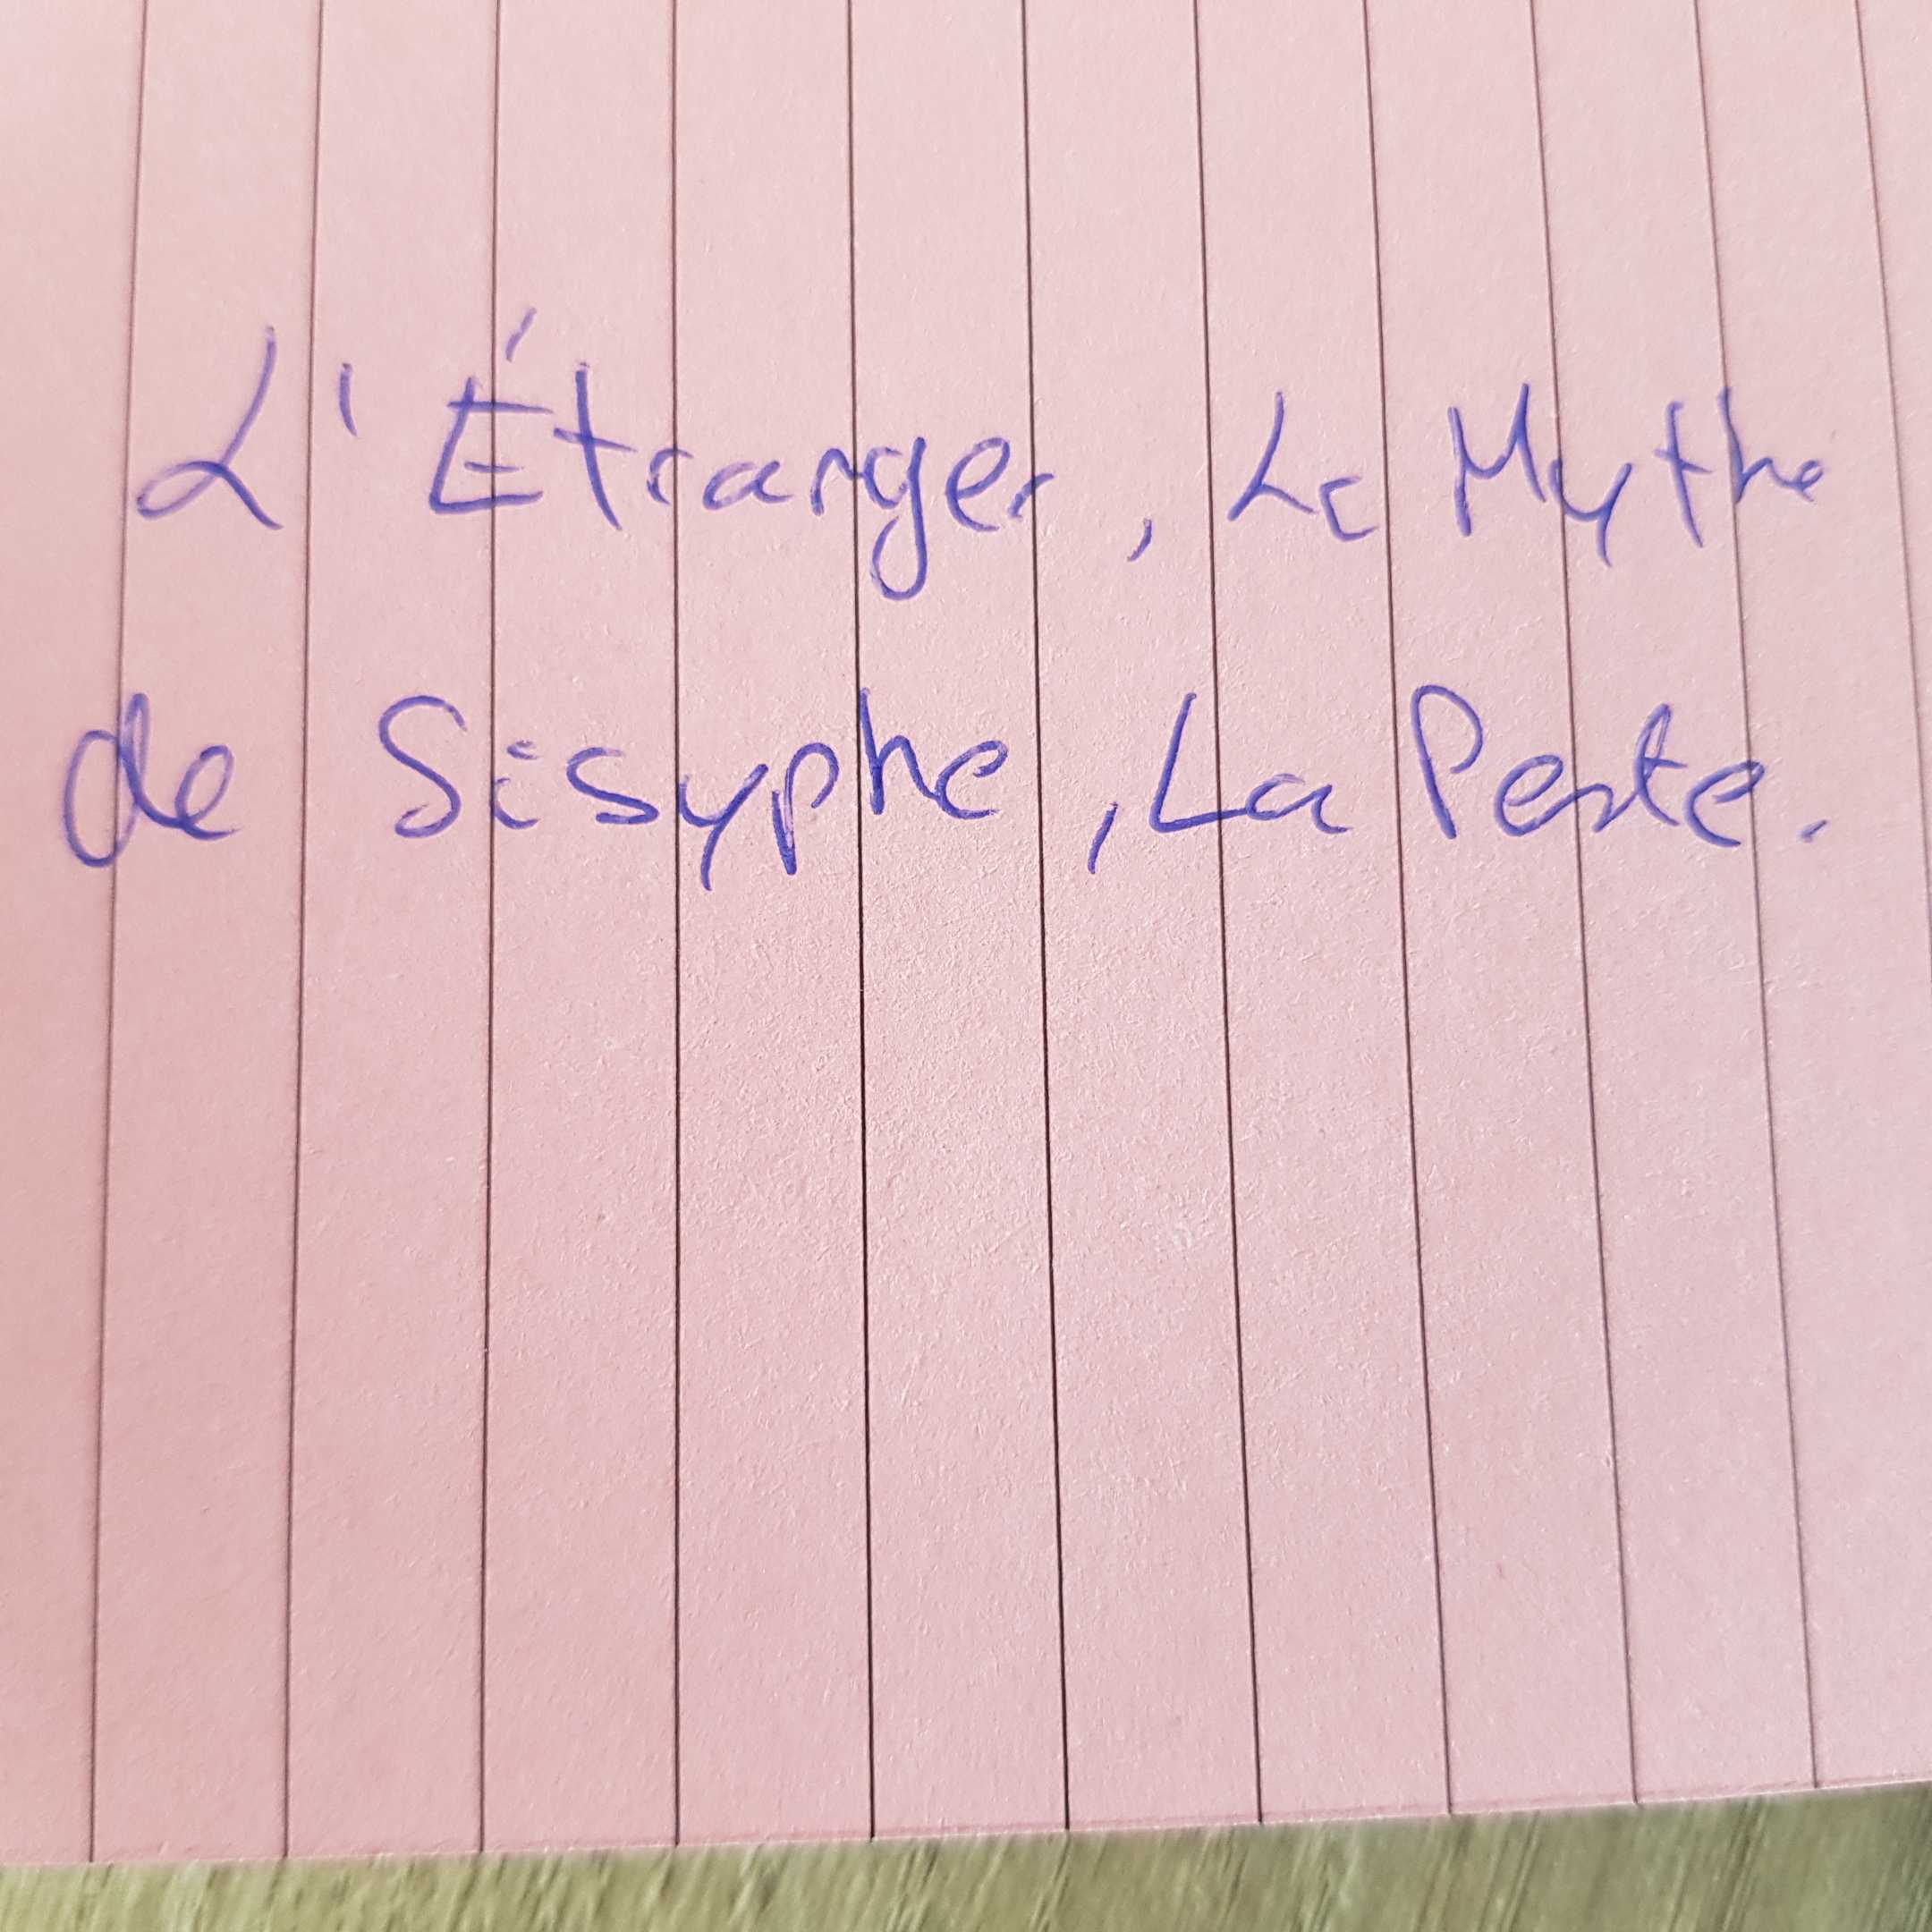 L'Étranger, Le Mythe
de Sisyphe, La Peste.